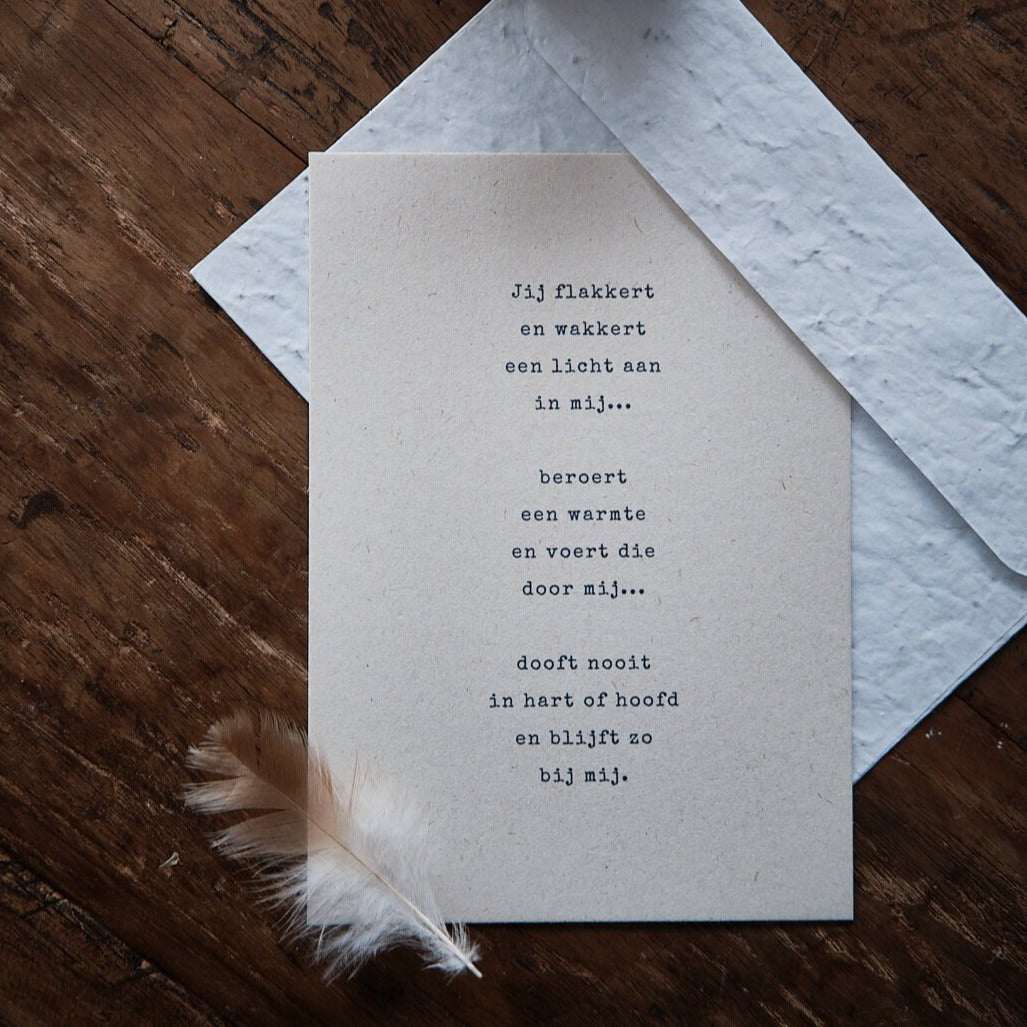 Jij flakkert
en wakkert
een licht aan
in mij...
beroert
een warmte
en voert die
door mij...
dooft nooit
in hart of hoofd
en blijft zo
bij mij.